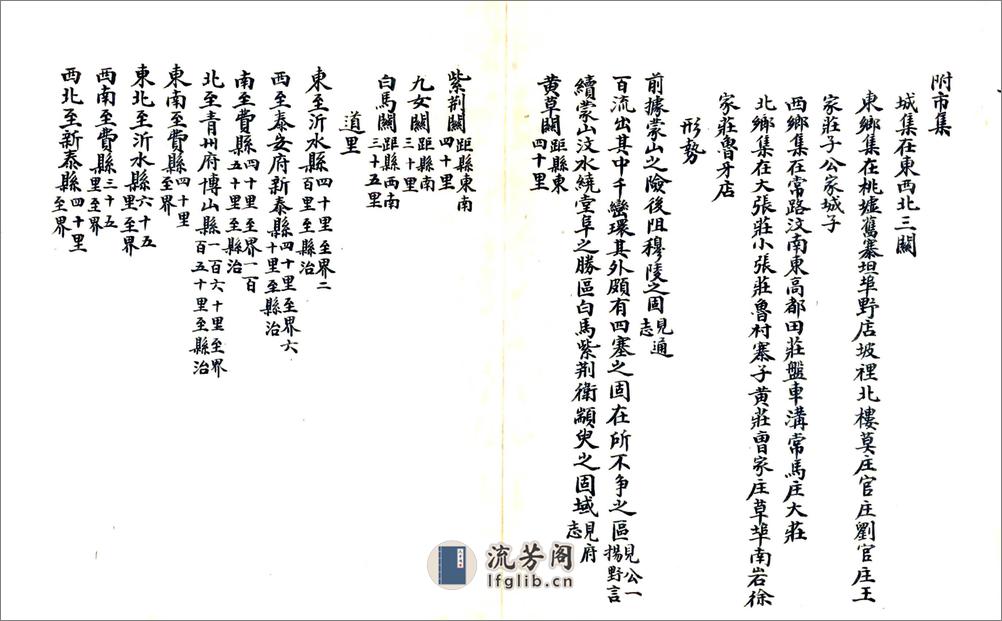 附市集
城集在東西北三關
東鄉集在桃墟舊寨坦埠野店坡裡北樓莫庄官庄劉官庄王
家莊子公家城子
西鄉集在常路汶南東高都田莊盤車溝常馬庄大莊
北鄉集在大張莊小張莊魯村寨子黃莊曹家庄草埠南岩徐
家莊魯牙店
形勢
前據蒙山之險後阻穆陵之固見通志
百流出其中千巒環其外頗有四塞之固在所不爭之區見公一揚野言
續蒙山汶水繞堂阜之勝區白馬紫荆衛顓臾之固域見府志
黃草關距縣東四十里
紫荆關距縣東南四十里
九女關距縣南三十里
白馬關距縣西南三十五里
道里
東至沂水縣四十里至界二百里至縣治
西至泰安府新泰縣四十里至界六十里至縣治
南至費縣四十里至界一百五十里至縣治
北至青州府博山縣一百六十里至界百五十里至縣治
東南至費縣四十里至界
東北至沂水縣六十五里至界
西南至費縣三十五里至界
西北至新泰縣四十里至界
流芳阁
lfglib.cn